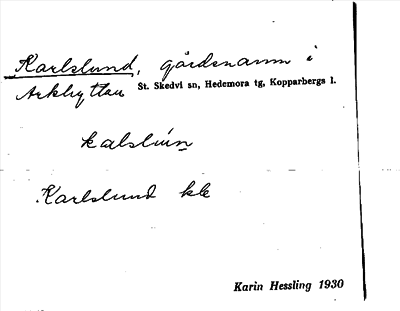 Karlslund, gårdsnamn i
Arkhyttan St. Skedvi sn, Hedemora tg, Kopparbergs l.
kalslún
Karlslund kb
Karin Hessling 1930